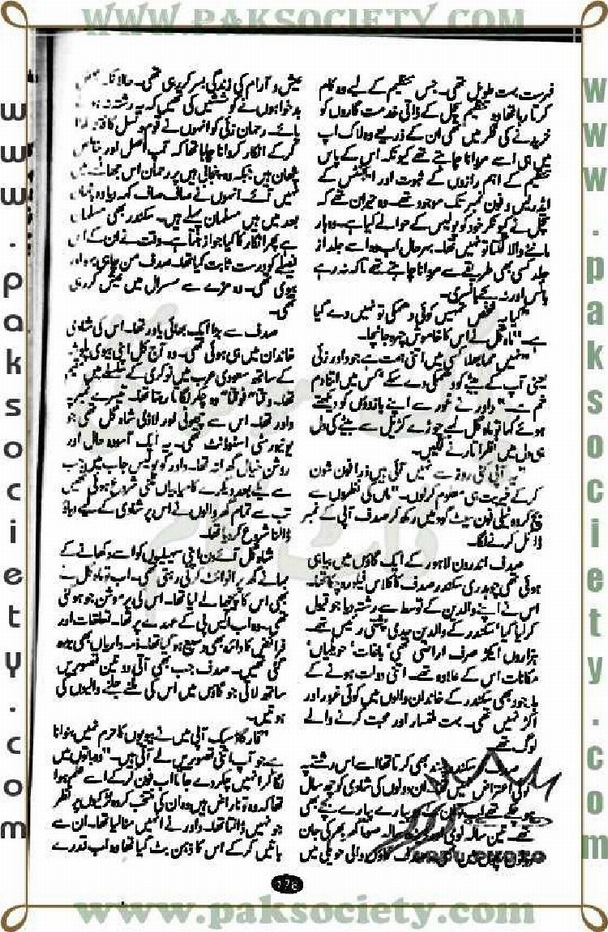 WWW.PAKSOCIETY.COM
فہرست بہت طویل تھی۔ جس تنظیم کے لیے وہ کام
کرتا رہا تھا وہ تنظیم کچل کے ذاتی خدمت گاروں کو
خریدنے کی فکر میں تھی ان کے ذریعے وہ لاک اپ
میں ہی اسے مروانا چاہتے تھے کیونکہ اس کے پاس
تنظیم کے اہم رازوں کے ثبوت اور ایجنٹس کے
ایڈریس و فون نمبر تک موجود تھے۔ وہ حیران تھے کہ
کچل نے کیونکر خود کو پولیس کے حوالے کیا ہے۔ وہ ہار
ماننے والا لگتا تو نہیں تھا۔ بہرحال اب وہ اسے جلد از
جلد کسی بھی طریقے سے مروانا چاہتے تھے تاکہ نہ رہے
بانس اور نہ بجے بانسری۔
شخص تمہیں کوئی دھمکی تو نہیں دے گیا
ہے۔" ماہ گل نے اس کا خاموش چہرہ جانچا۔
"نہیں مما بھلا کسی میں اتنی ہمت ہے جو داور زئی
یعنی آپ کے بیٹے کو دھمکی دے سکے "کس میں اتنا دم
خم ہے۔" داور نے غور سے اپنے بازوؤں کو دیکھتے
ہوئے کہا تو ماہ گل نے چوڑے کڑیل سے بیٹے کی دل
ہی دل میں نظر اتارنے لگیں۔
"یہ آپی کئی روز سے نہیں آئی ہیں ذرا فون شون
کر کے خیریت ہی معلوم کر لوں۔" ماں کی نظروں سے
بچ کر وہ ٹیلی فون سیٹ گود میں رکھ کر صدف آپی کے نمبر
ڈائل کرنے لگا۔
صدف اندرون لاہور کے ایک گاؤں میں بیاہی
ہوئی تھی چوہدری سکندر صدف کا کلاس فیلو رہ چکا تھا۔
اس نے اپنے والدین کے توسط سے رشتہ دیا جو قبول
کر لیا گیا سکندر کے والدین جدی پشتی رئیس تھے۔
ہزاروں ایکڑ صرف اراضی تھی، باغات، حویلیاں،
مکانات اس کے علاوہ تھے۔ اتنی دولت ہونے کے
باوجود بھی سکندر کے خاندان والوں میں کوئی غرور اور
اکڑ نہیں تھی۔ بہت ملنسار اور محبت کرنے والے
لوگ تھے۔
صدف سکندر پسند بھی کرتا تھا اسے اس رشتے پہ
کوئی اعتراض نہیں تھا۔ ان دونوں کی شادی کو چھ سال
ہو چکے تھے پیارے پیارے بچے بھی
تھے۔ تین سالہ ٹوبی اور سالہ صبا گھر بھر کی جان
میں گاؤں والی حویلی میں
عیش و آرام کی زندگی بسر کر رہی تھی۔ حالانکہ بعض
بدخواہوں نے کوششیں کی تھیں کہ یہ رشتہ نہ ہو
پائے۔ رحمان زئی کو انہوں نے قوم و نسل کا فرق
کر کے انکار کروانا چاہا تھا کہ آپ اصل اور خالص
پٹھان ہیں جبکہ وہ پنجابی ہیں پر رحمان اس بھلاوے میں
نہیں آئے۔ انہوں نے صاف صاف کہہ دیا وہ پٹھان
بعد میں ہیں مسلمان پہلے ہیں۔ سکندر بھی مسلمان
ہے پھر انکار کا کیا جواز بنتا ہے۔ وقت نے ان کے اس
فیصلے کو درست ثابت کیا تھا۔ صدف من چاہی بہو اور
بیوی تھی۔ وہ مزے سے سسرال میں عیش کر رہی
تھی۔
صدف سے بڑا ایک بھائی یاور تھا۔ اس کی شادی
خاندان میں ہی ہوئی تھی۔ وہ آج کل اپنی بیوی
کے ساتھ سعودی عرب میں نوکری کے سلسلے میں مقیم
تھا۔ وقتاً فوقتاً وہ چکر لگاتا رہتا تھا۔ تیسرے نمبر پہ
داور تھا۔ اس سے چھوٹی اور لاڈلی شاہ گل تھی جو
یونیورسٹی اسٹوڈنٹ تھی۔ یہ ایک آسودہ حال اور
روشن خیال گھرانہ تھا۔ داور کو پولیس جاب میں جب
سے یکے بعد دیگرے کامیابیاں ملنی شروع ہوئی تھیں
تب سے تمام گھر والوں نے اس پر شادی کے لیے دباؤ
ڈالنا شروع کر دیا تھا۔
شاہ گل آئے دن اپنی سہیلیوں کو اسے دکھانے کے
بہانے گھر پر انوائٹ کرتی رہتی تھی۔ اب تو ماہ گل نے
بھی اس کا پیچھا لے لیا تھا۔ اس کی پروموشن جو ہو گئی
تھی۔ وہ اب ایس پی کے عہدے پر تھا۔ تعلقات اور
فرائض کا دائرہ بھی وسیع ہو گیا تھا۔ ذمہ داریاں بھی بڑھ
گئی تھیں۔ صدف جب بھی آتی دو تین تصویریں
ساتھ لاتی جو گاؤں میں اس کی ملنے جلنے والیوں کی
ہوتیں۔
"گاڈ سیک آپی میں نے بیویوں کا حرم نہیں بنوانا
ہے جو آپ اتنی تصویریں لے آتی ہیں۔" وہ باتوں میں
لگا کر انہیں چکر دے جاتا اب فون کر کے اسے علم ہوا
تھا کہ وہ تو ناراض ہیں وہ ان کی منتخب کردہ لڑکیوں پر نظر
جو نہیں ڈالتا تھا۔ داور نے انہیں منا لیا تھا۔ ان سے
باتیں کر کے اس کا ذہن بٹ گیا تھا وہ اب قدرے
www.paksociety.com
www.paksociety.com
www.paksociety.com